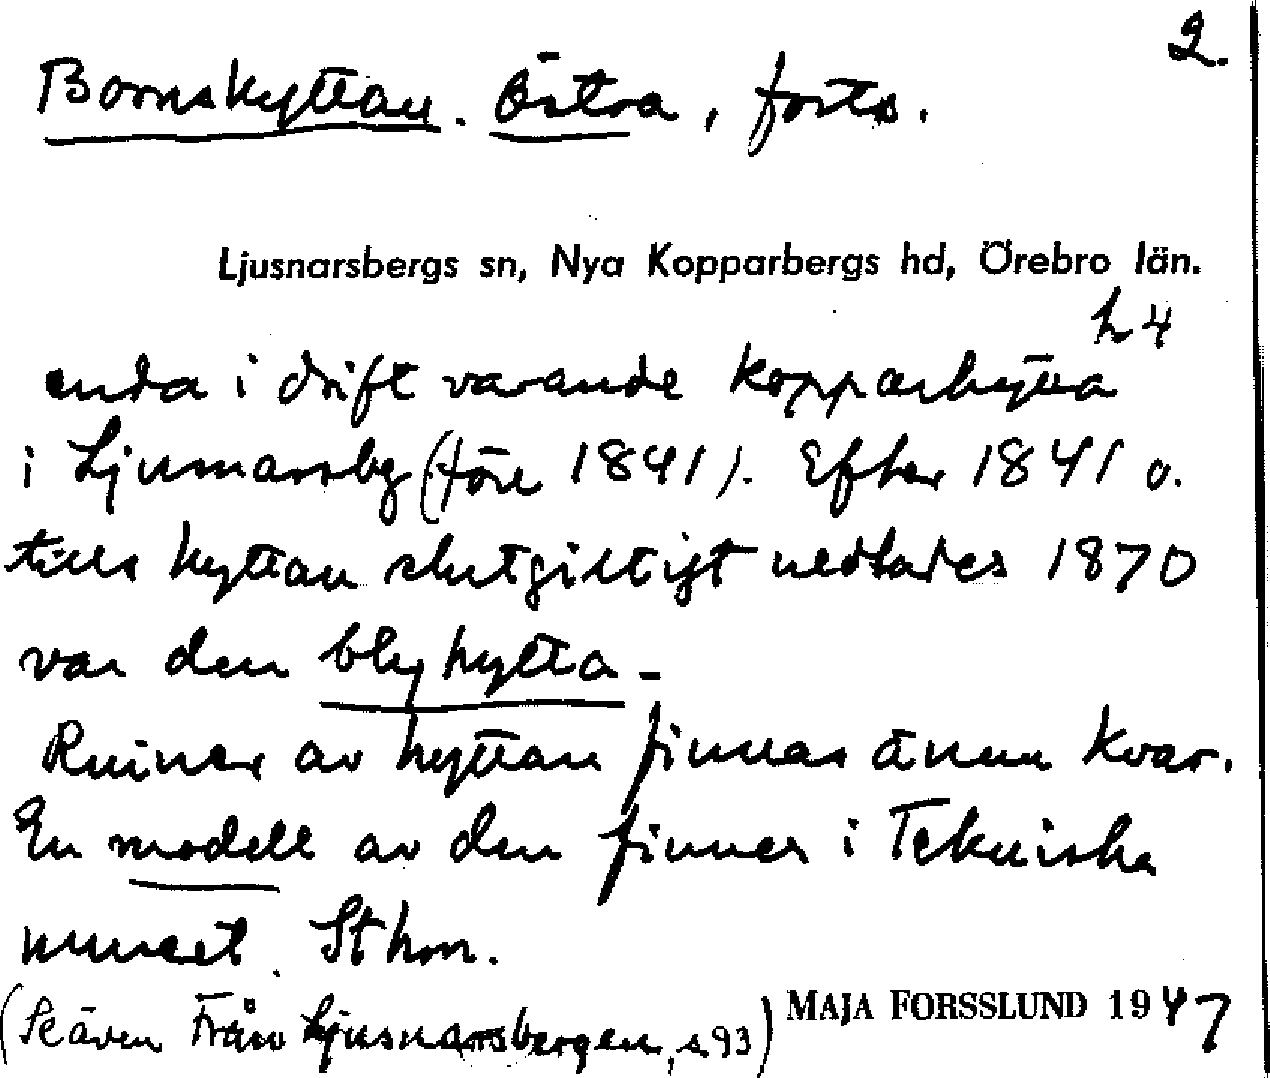 2.
Bornshyttan. Östra, forts.
Ljusnarsbergs sn, Nya Kopparbergs hd, Örebro län.
h 4
enda i drift varande kopparhytta
i Ljusnarsbg (före 1841). Efter 1841 o.
tills hyttan slutgiltigt nedlades 1870
var den blyhytta -
Ruiner av hyttan finnas ännu kvar.
En modell av den finnes i Tekniska
museet. Sthm.
(Se även Från Ljusnarsbergen, s. 93) MAJA FORSSLUND 1947